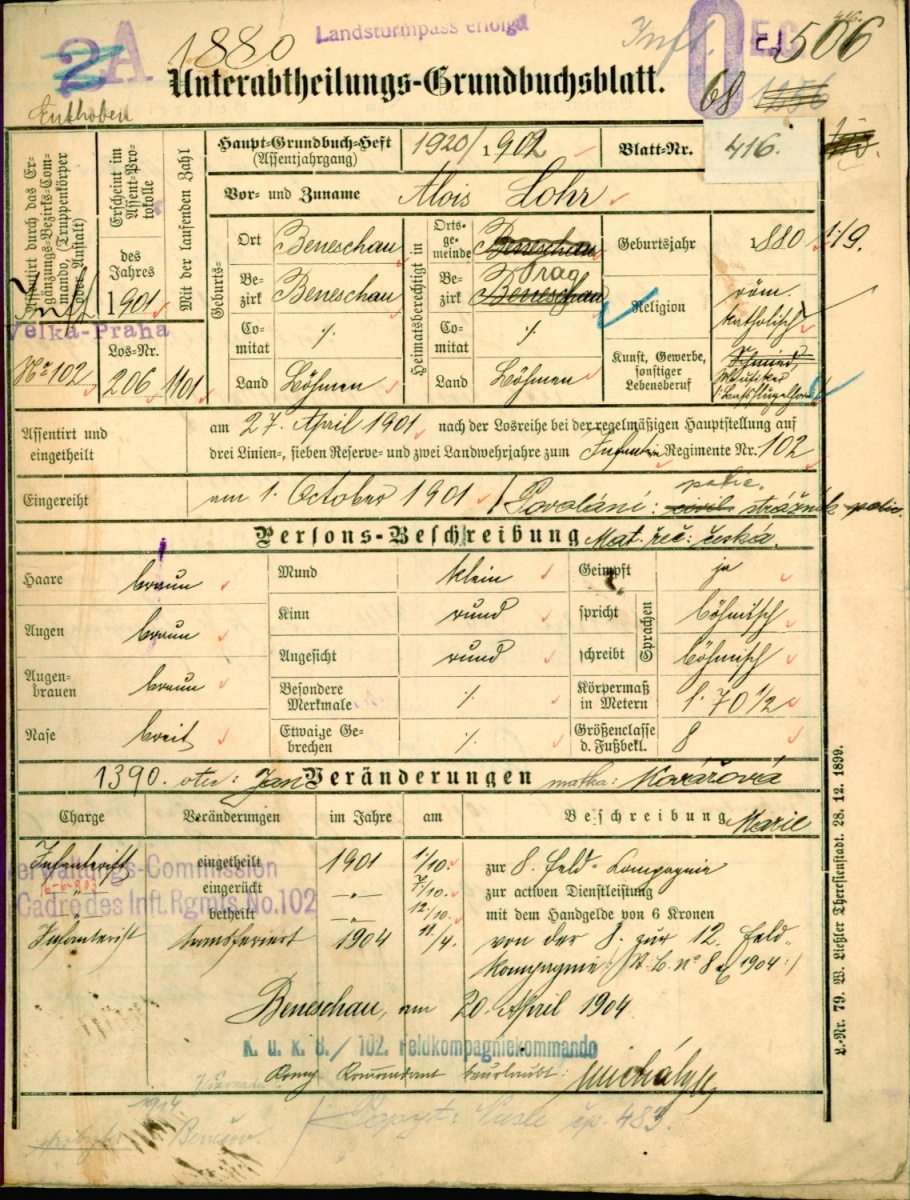 2A 1880 Landsturmpass erfolgt Inft. DEC 506
416.
Unterabtheilungs-Grundbuchsblatt. 68
Enthoben
Assentirt durch das Ergänzungs-Bezirks-Commando, (Truppenkörper oder Anstalt)
Inft
Velka-Praha
No 102
Erscheint im Assent-Protokolle
des Jahres
1901
Los-Nr.
206
Mit der laufenden Zahl
1101
Haupt-Grundbuch-Heft (Assentjahrgang) 1920/1902 Blatt-Nr. 416.
Vor- und Zuname Alois Lohr
Geburts-
Ort Beneschau
Bezirk Beneschau
Comitat ·/.
Land Böhmen
Heimatsberechtigt in
Ortsgemeinde Beneschau
Prag
Bezirk Beneschau
Comitat ·/.
Land Böhmen
Geburtsjahr 1880 119.
Religion röm. katholisch
Kunst, Gewerbe, sonstiger Lebensberuf Schmied
Assentirt und eingetheilt
am 27. April 1901 nach der Losreihe bei der regelmäßigen Hauptstellung auf
drei Linien-, sieben Reserve- und zwei Landwehrjahre zum Infanterie Regimente Nr. 102
Eingereiht am 1. October 1901 / Povolání: civil strážník polic.
polic.
Persons-Beschreibung Mat. řeč: česká.
Haare braun
Augen braun
Augenbrauen braun
Nase breit
Mund klein
Kinn rund
Angesicht rund
Besondere Merkmale ·/.
Etwaige Gebrechen ·/.
Geimpft ja
Sprachen
spricht böhmisch
schreibt böhmisch
Körpermaß in Metern 1·70 1/2
Größenclasse d. Fußbekl. 8
1390. otec: Jan Veränderungen matka: Kovářová
Marie
Charge Veränderungen im Jahre am Beschreibung
Infanterist eingetheilt 1901 1/10. zur 8. Feld-Compagnie
Verwaltungs-Commission
-„- eingerückt -„- 7/10. zur activen Dienstleistung
Cadre des Inft. Rgmts. No. 102
-„- betheilt -„- 12/10. mit dem Handgelde von 6 Kronen
Infanterist transferiert 1904 11/4. von der 8. zur 12. Feld-
kompagnie /: K.B. No 8 ex 1904 :/
Beneschau, am 20. April 1904
K. u. k. 8. / 102. Feldkompagniekommando
Komp Kommandant beurlaubt:
1904
Benešov. čp. 483.
L.-Nr. 79. W. Ließler Theresienstadt. 28. 12. 1899.